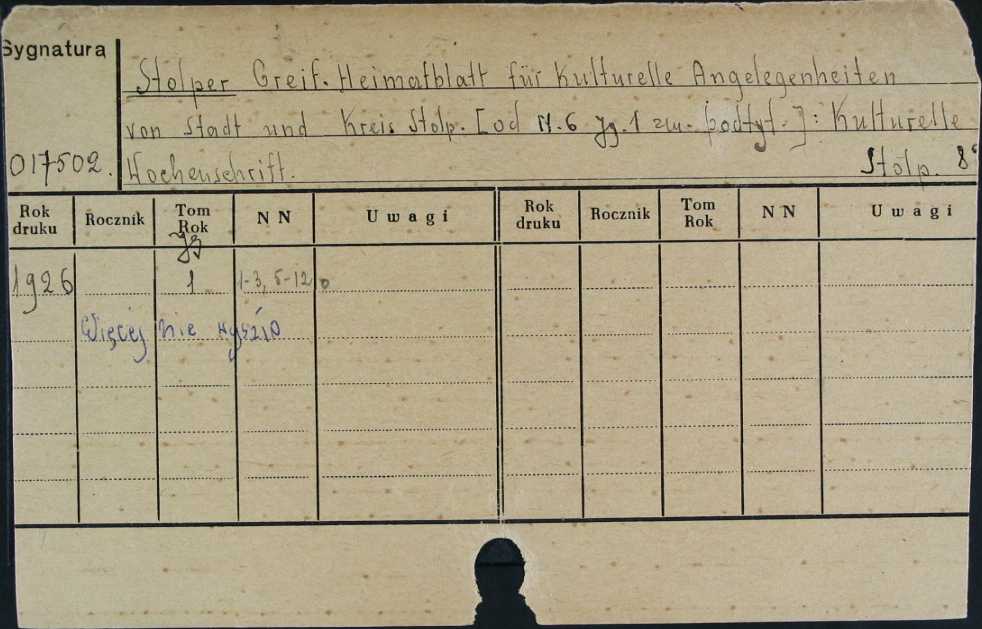 Sygnatura
Stolper Greif. Heimatblatt für Kulturelle Angelegenheiten
von Stadt und Kreis Stolp. [od N. 6 Jg. 1 zm. podtyt.]: Kulturelle
017502. Wochenschrift. Stolp. 8°
Rok druku Rocznik Tom Rok NN Uwagi Rok druku Rocznik Tom Rok NN Uwagi
Jg
1926 1 1-3, 5-12
Więcej nie wyszło